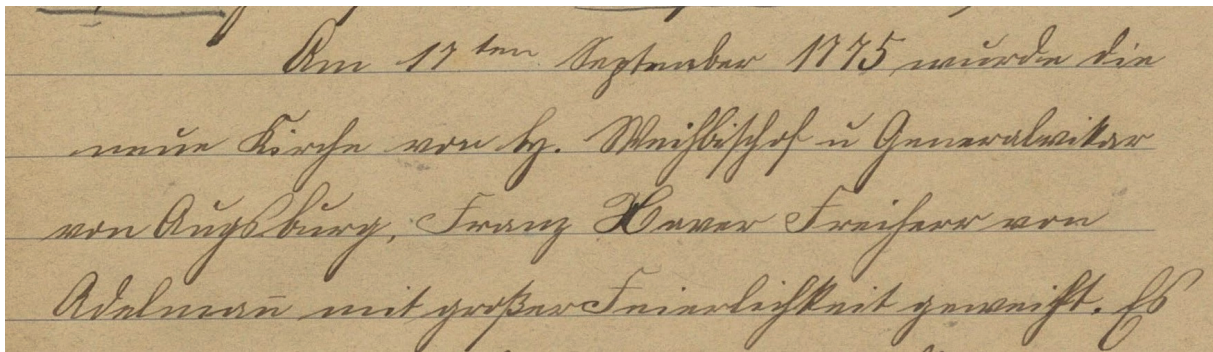 Am 17ten September 1775 wurde die
neue Kirche von hh. Weihbischof u Generalvikar
von Augsburg, Franz Xaver Freiherr von
Adelman̄ mit großer Feierlichkeit geweiht. Es